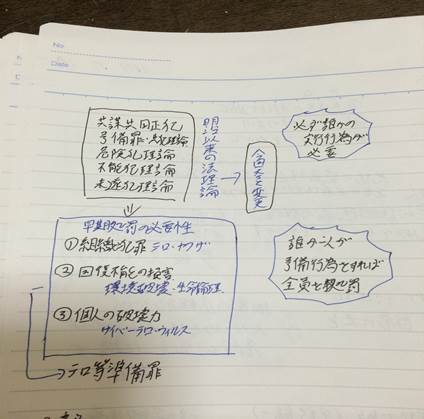 No
Date
共謀共同正犯
予備罪・共犯理論
危険犯理論
不能犯理論
未遂犯理論
明治以来の法理論
→
今回大きく変更
必ず誰かの
実行行為が
必要
早期処罰の必要性
①組織犯罪 テロ・ヤクザ
②回復不能の損害
環境破壊・生命倫理
③個人の破壊力
サイバーテロ・ウィルス
誰か一人が
予備行為をすれば
全員を処罰
→テロ等準備罪